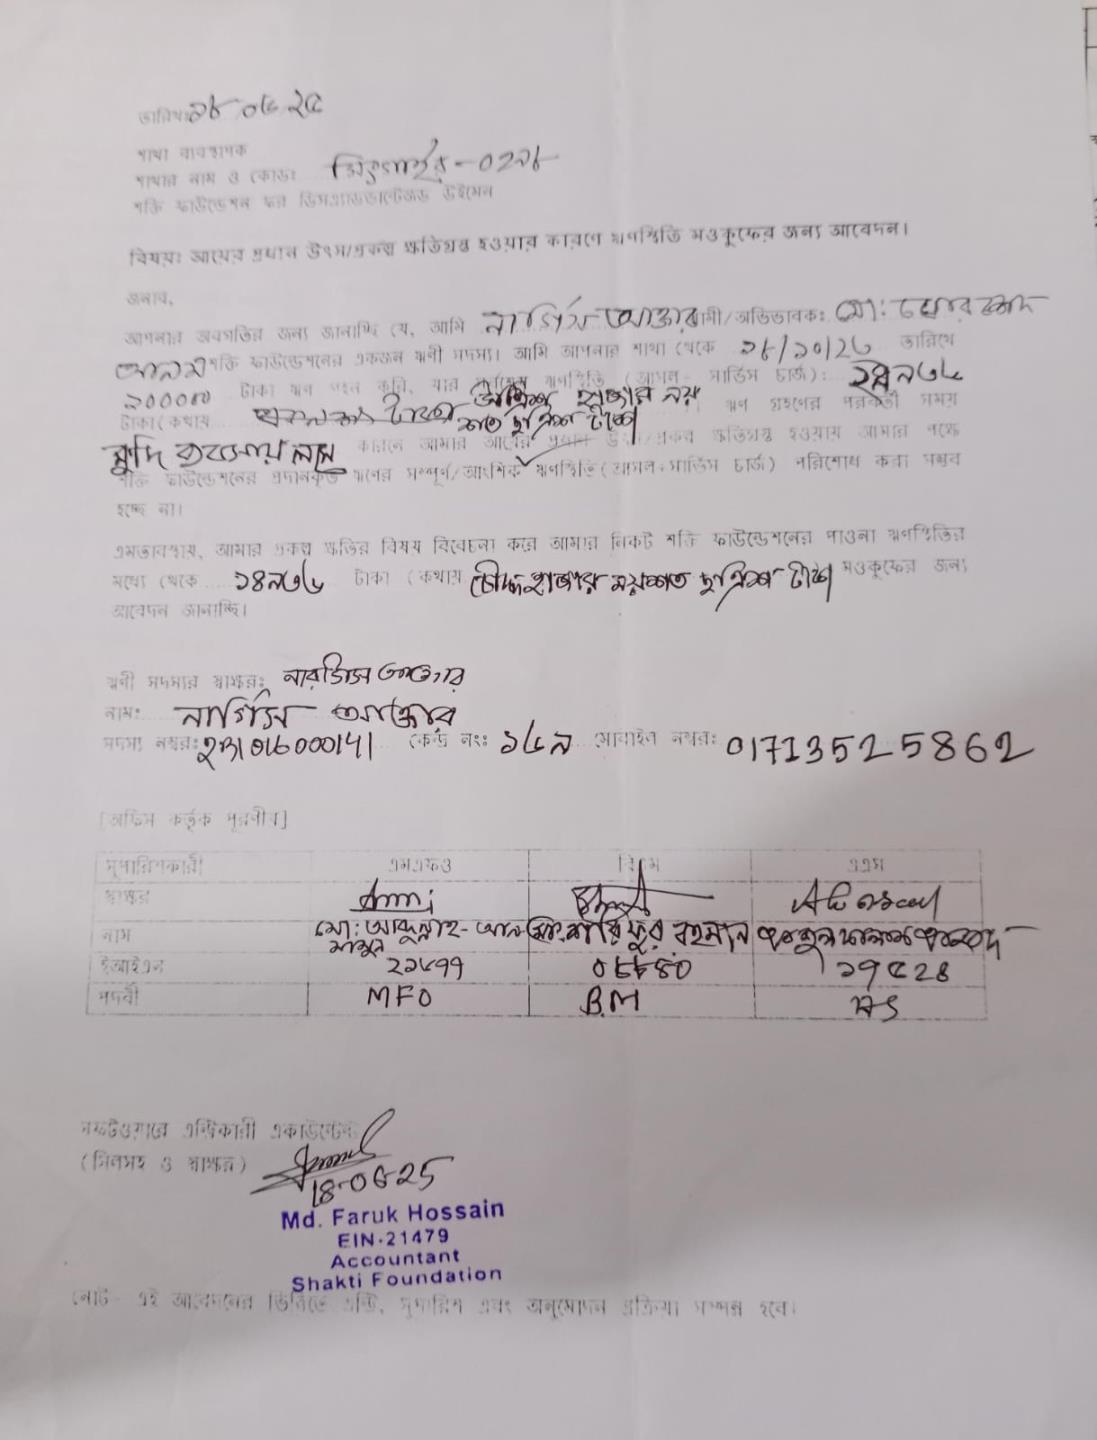 তারিখঃ ১৮ ০৬ ২৫
শাখা ব্যবস্থাপক
শাখার নাম ও কোডঃ - 0২১৮
শক্তি ফাউন্ডেশন ফর ডিসএ্যাডভান্টেজড উইমেন
বিষয়ঃ আয়ের প্রধান উৎস/প্রকল্প ক্ষতিগ্রস্ত হওয়ার কারণে ঋণস্থিতি মওকুফের জন্য আবেদন।
জনাব,
আপনার অবগতির জন্য জানাচ্ছি যে, আমি নার্গিস আক্তার স্বামী/অভিভাবকঃ মো:
আলম শক্তি ফাউন্ডেশনের একজন ঋণী সদস্য। আমি আপনার শাখা থেকে ১৮/১০/২৩ তারিখে
১০০০০০ টাকা ঋণ গ্রহন করি, যার সর্বশেষ ঋণস্থিতি (আসল+ সার্ভিস চার্জ): হাজার নয়
টাকা(কথায় শত ছত্রিশ টাকা ঋণ গ্রহণের পরবর্তী সময়
মুদি ব্যবসায় লস কারনে আমার আয়ের প্রধান উৎস/প্রকল্প ক্ষতিগ্রস্ত হওয়ায় আমার পক্ষে
শক্তি ফাউন্ডেশনের প্রদানকৃত ঋণের সম্পূর্ণ/আংশিক ঋণস্থিতি(আসল+সার্ভিস চার্জ) পরিশোধ করা সম্ভব
হচ্ছে না।
এমতাবস্থায়, আমার প্রকল্প ক্ষতির বিষয় বিবেচনা করে আমার নিকট শক্তি ফাউন্ডেশনের পাওনা ঋণস্থিতির
মধ্যে থেকে ১৪৯৩৬ টাকা (কথায় চৌদ্দ হাজার নয়শত ছত্রিশ টাকা মওকুফের জন্য
আবেদন জানাচ্ছি।
ঋণী সদস্যর স্বাক্ষরঃ নারগিস আক্তার
নামঃ নার্গিস আক্তার
সদস্য নম্বরঃ কেন্দ্র নংঃ ১৬৯ মোবাইল নম্বরঃ 01713525862
[অফিস কর্তৃক পূরণীয়]
সুপারিশকারী এমএফও বিএম এএস
স্বাক্ষর
নাম মো: আব্দুল্লাহ- আল- মামুন মো: শরিফুর রহমান
ইআইএন ২১৬৭৭ ০৮৮৪০ ১৭৫২৪
পদবী MFO B.M AS
সফটওয়ারে এন্ট্রিকারী একাউন্টেন্ট
(সিলসহ ও স্বাক্ষর)
18-06-25
Md. Faruk Hossain
EIN-21479
Accountant
Shakti Foundation
নোট- এই আবেদনের ভিত্তিতে এন্ট্রি, সুপারিশ এবং অনুমোদন প্রক্রিয়া সম্পন্ন হবে।